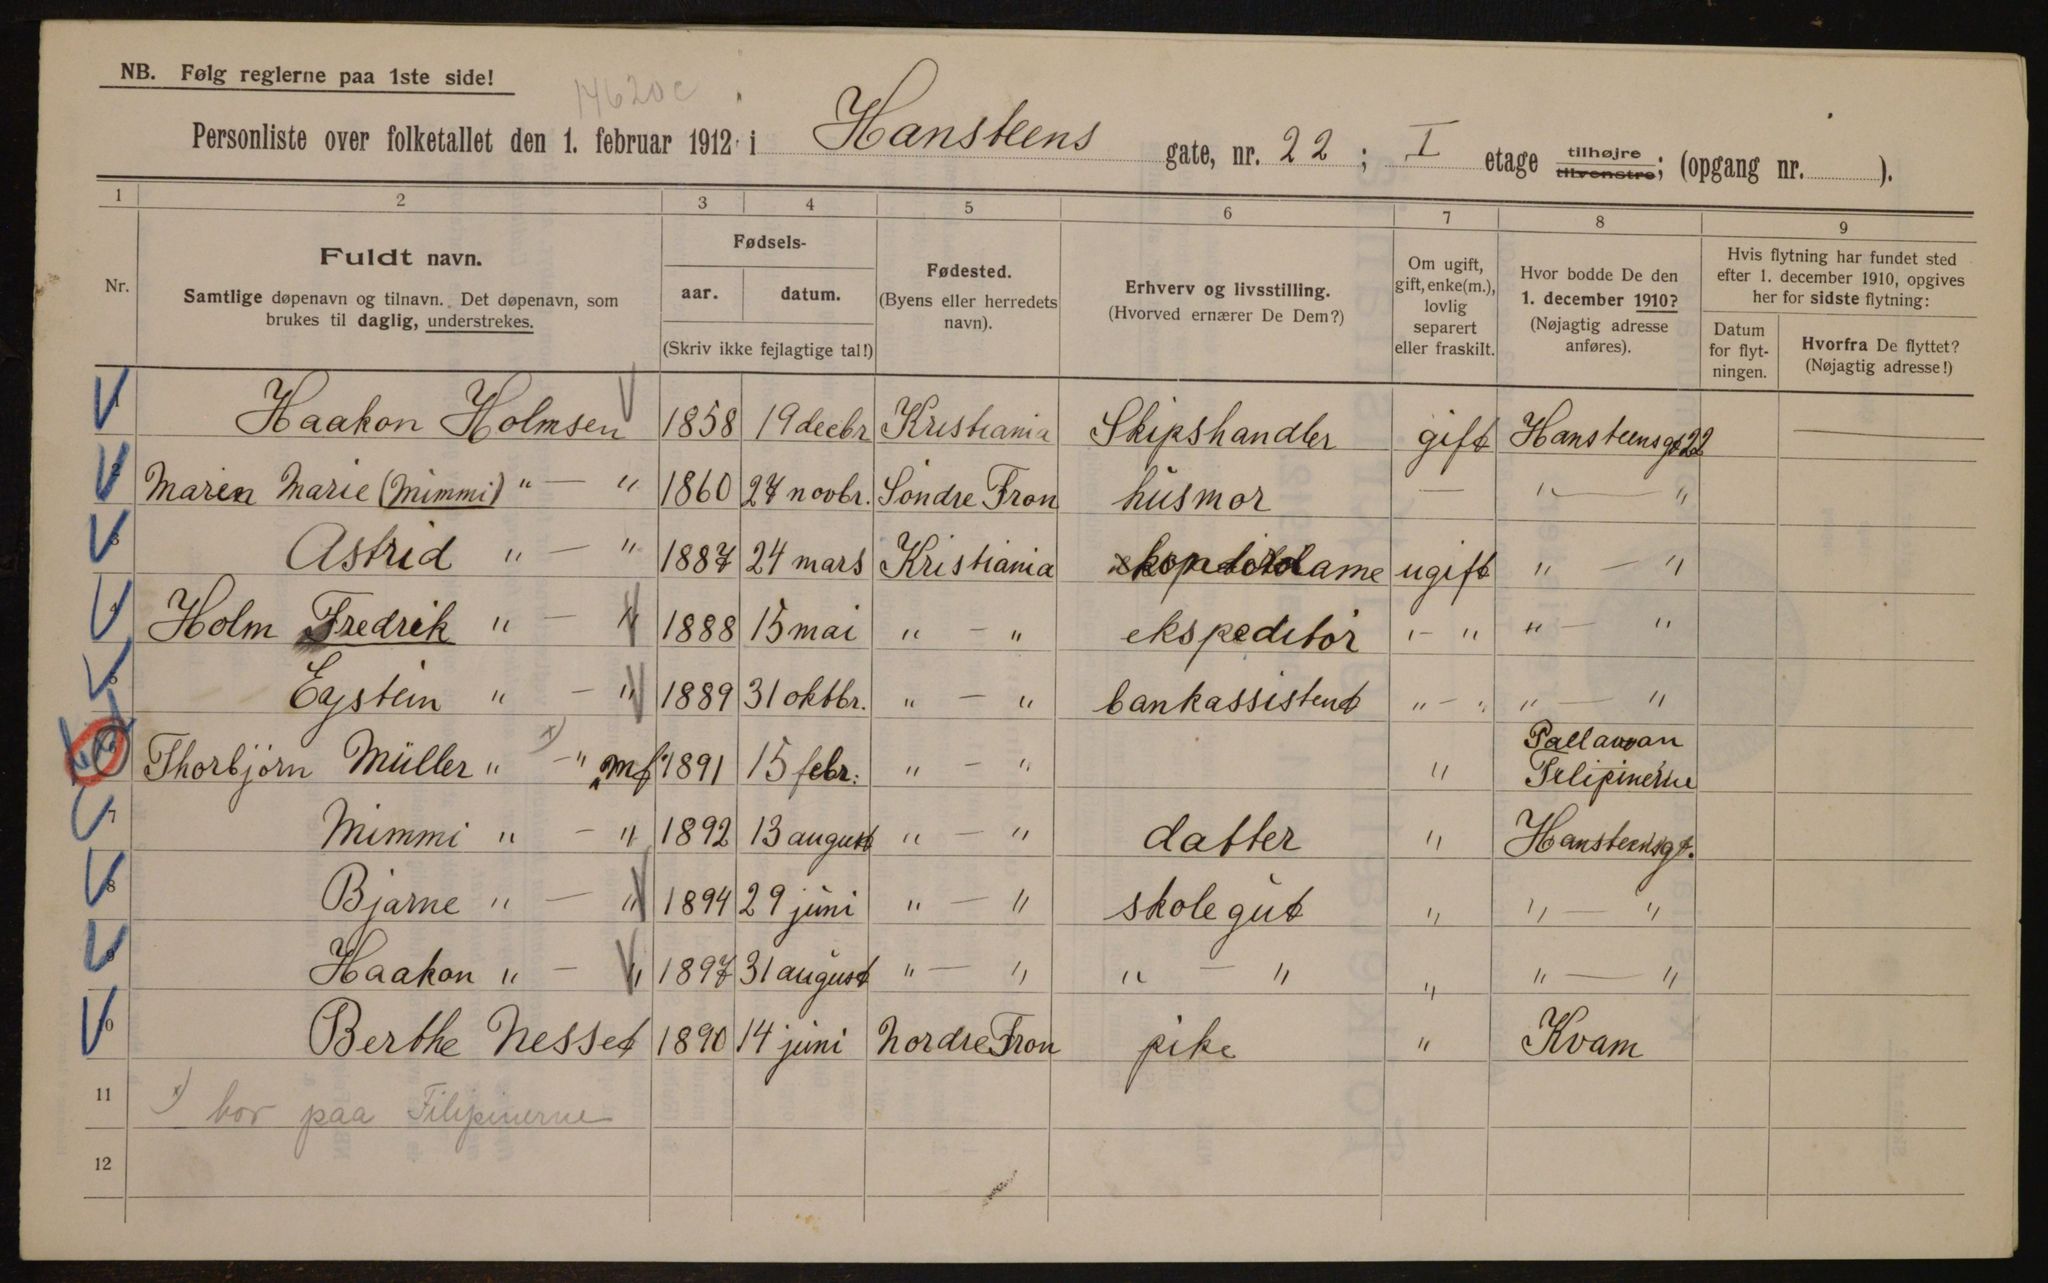 NB. Følg reglerne paa 1ste side!
14620c
Personliste over folketallet den 1. februar 1912 i Hansteens gate, nr. 22 ; I etage tilhøjre tilvenstre; (opgang nr. ).
1 2 3 4 5 6 7 8 9
Nr. Fuldt navn. Samtlige døpenavn og tilnavn. Det døpenavn, som brukes til daglig, understrekes.
Fødsels- aar. datum. (Skriv ikke fejlagtige tal!)
Fødested. (Byens eller herredets navn).
Erhverv og livsstilling. (Hvorved ernærer De Dem?)
Om ugift, gift, enke(m.), lovlig separert eller fraskilt.
Hvor bodde De den 1. december 1910? (Nøjagtig adresse anføres).
Hvis flytning har fundet sted efter 1. december 1910, opgives her for sidste flytning:
Datum for flyt-ningen.
Hvorfra De flyttet? (Nøjagtig adresse!)
1 Haakon Holmsen 1858 19 decbr Kristiania Skipshandler gift Hansteensgt 22 —
2 Maren Marie (Mimmi) " — " 1860 27 novbr. Søndre Fron husmor — " — "
3 Astrid " — " 1887 24 mars Kristiania ugift " — "
4 Holm Fredrik " — " 1888 15 mai " — " ekspeditør " — " " — "
5 Eystein " — " 1889 31 oktbr. " — " bankassistent " — " " — "
6 Thorbjørn Müller " — " x) mf 1891 15 febr. " — " " Pallawan Filipinerne
7 Mimmi " — " 1892 13 august " — " datter " Hansteensgt.
8 Bjarne " — " 1894 29 juni " — " skolegut " " — "
9 Haakon " — " 1897 31 august " — " " — " " " — "
10 Berthe Nesset 1890 14 juni Nordre Fron pike " Kvam
11 x) bor paa Filipinerne
12